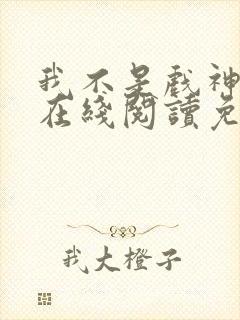 我不是戲神
在綫閱讀免
我大橙子